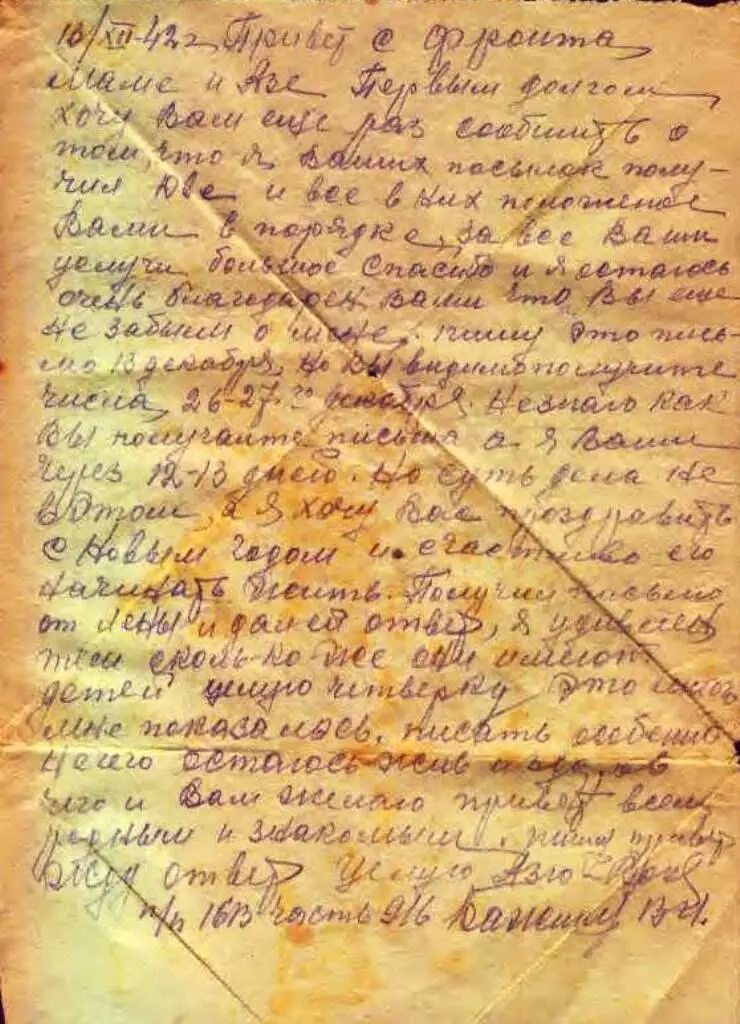 13/XII-42 г. Привет с фронта
Маме и Азе Первым долгом
хочу Вам еще раз сообщить о
том, что я Ваших посылок полу-
чил две и все в них положеное
Вами в порядке, за все Ваши
услуги большое спасибо и я остаюсь
очень благодарен вами что Вы еще
не забыли о мне, пишу это пись-
мо 13 декабря, но Вы видимо получите
числа, 26-27го декабря. Незнаю как
Вы получаите письма а я Ваши
через 12-13 дней. Но суть дела не
в этом, а я хочу Вас проздравить
с Новым годом и счастливо его
начинать жить. Получил письмо
от Лены и дал ей ответ, я удивлен
тем сколь-ко же они имеют
детей целую четверку это много
мне показалось. писать особенно
нечего остаюсь жив и здоров
чего и Вам желаю привет всем
родным и знакомым. привет
жду ответ Целую Азю
п/п 1613 часть 916